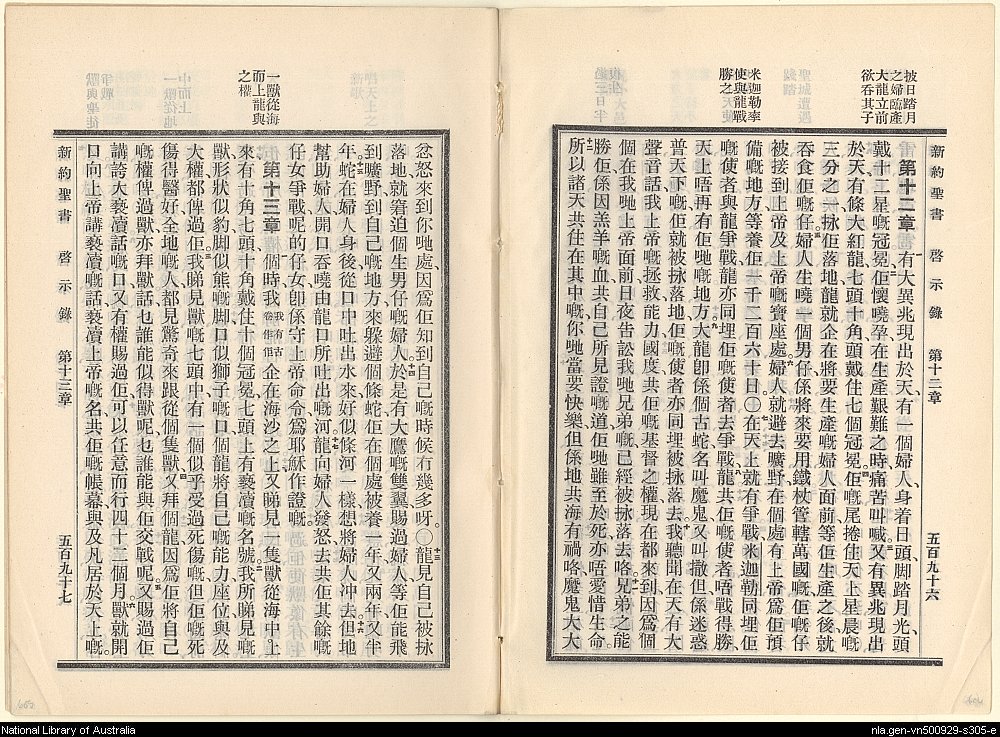 披日踏月
之婦臨產
大龍立前
欲吞其子
米迦勒率
使與龍戰
勝之
新約聖書 啓示錄 第十二章 五百九十六
第十二章 有大異兆現出於天、有一個婦人、身着日頭、脚踏月光、頭
戴十二星嘅冠冕、佢懷曉孕、在生產艱難之時、痛苦叫喊、又有異兆現出
於天、有條大紅龍、七頭十角、頭戴住七個冠冕、佢嘅尾捲住天上星晨嘅
三分之一、捸佢落地、龍就企在將要生產嘅婦人面前、等佢生產之後、就
吞食佢嘅仔、婦人生曉一個男仔、係將來要用鐵杖管轄萬國嘅、佢嘅仔
被接到上帝、及上帝嘅寶座處、婦人就避去曠野、在個處有上帝爲佢預
備嘅地方、等養佢一千二百六十日。〇在天上就有爭戰、米迦勒同埋佢
嘅使者與龍爭戰、龍亦同埋佢嘅使者去爭戰、龍共佢嘅使者唔戰得勝、
天上唔再有佢哋嘅地方、大龍卽係個古蛇、名叫魔鬼、又叫撒但、係迷惑
普天下嘅、佢就被捸落地、佢嘅使者亦同埋被捸落去、我聽聞在天有大
聲音話、我上帝嘅拯救能力國度、共佢嘅基督之權、現在都來到、因爲個
個在我哋上帝面前、日夜告訟我哋兄弟嘅、已經被捸落去咯、兄弟之能
勝佢、係因羔羊嘅血、共自己所見證嘅道、佢哋雖至於死、亦唔愛惜生命、
所以諸天共住在其中嘅、你哋當要快樂、但係地共海有禍咯、魔鬼大大
一獸從海
而上龍與
之權
忿怒來到你哋處、因爲佢知到自己嘅時候冇幾多呀。〇龍見自己被捸
落地、就窘迫個生男仔嘅婦人、於是有大鷹嘅雙翼賜過婦人、等佢能飛
到曠野到自己嘅地方、來躲避個條蛇、佢在個處被養一年、又兩年、又半
年、蛇在婦人身後、從口中吐出水來、好似條河一樣、想將婦人冲去、但地
幫助婦人、開口吞曉由龍口所吐出嘅河、龍向婦人發怒、去共佢其餘嘅
仔女爭戰、呢的仔女卽係守上帝命令、爲耶穌作證嘅。
第十三章 個時我我有古卷作佢企在海沙之上、又睇見一隻獸從海中上
來、有十角七頭、十角戴住十個冠冕、七頭上有褻瀆嘅名號、我所睇見嘅
獸、形狀似豹、脚似熊嘅脚、口似獅子嘅口、個龍將自己嘅能力、座位、與及
大權都俾過佢、我睇見獸嘅七頭中、有一個似乎受過死傷嘅、但佢嘅死
傷得醫好、全地嘅人都見驚奇、來跟從個隻獸、又拜個龍、因爲佢將自己
嘅權俾過獸、亦拜獸話、乜誰能似得獸呢、乜誰能與佢交戰呢、又賜過佢
講誇大褻瀆話嘅口、又有權賜過佢、可以任意而行四十二個月、獸就開
口向上帝講褻瀆嘅話、褻瀆上帝嘅名、共佢嘅帳幕、與及凡居於天上嘅。
新約聖書 啓示錄 第十三章 五百九十七
National Library of Australia
nla.gen-vn500929-s305-e